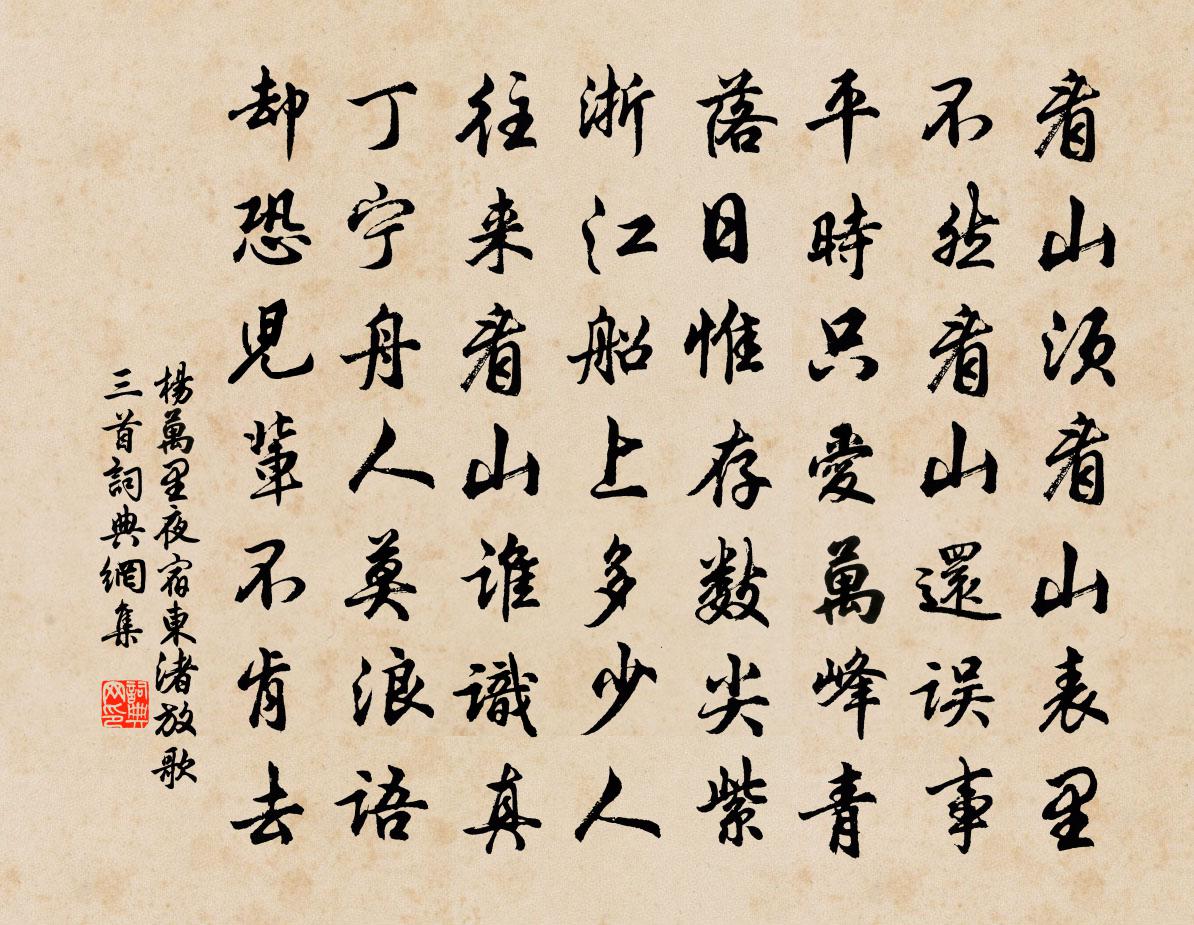 看山须看山表里
不然看山還误事
平時只愛萬峰青
落日惟存数尖紫
浙江船上多少人
往来看山谁識真
丁宁舟人莫浪语
却恐児輩不肯去
楊萬里夜宿東渚放歌
三首詞典網集
詞典网印